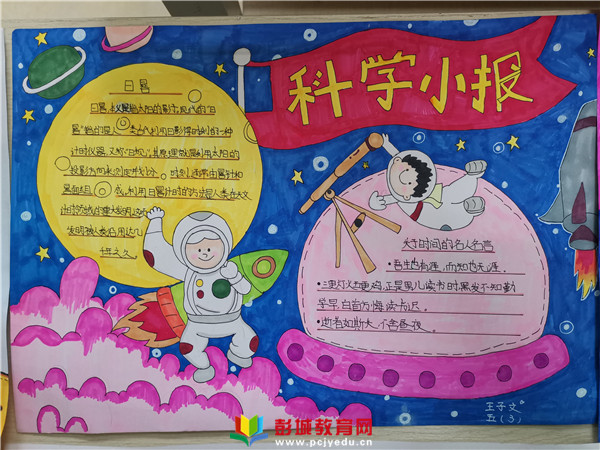 科学小报
日晷
日晷,本义是指太阳的影子。现代的“日
晷”指的是人类古代利用日影得时刻的一种
计时仪器,又称“日规”。其原理就是利用太阳的
投影方向来测定并划分
时刻,通常由晷针和
晷面组成。利用日晷计时的方法是人类在天文
计时领域的重大发明,这项
发明被人类沿用达几
千年之久。
关于时间的名人名言
·吾生也有涯,而知也无涯。
·三更灯火五更鸡,正是男儿读书时,黑发不知勤
学早,白首方悔读书迟。
·逝者如斯夫,不舍昼夜。
王子文
五(3)
彭城教育网
www.pcjyedu.cn